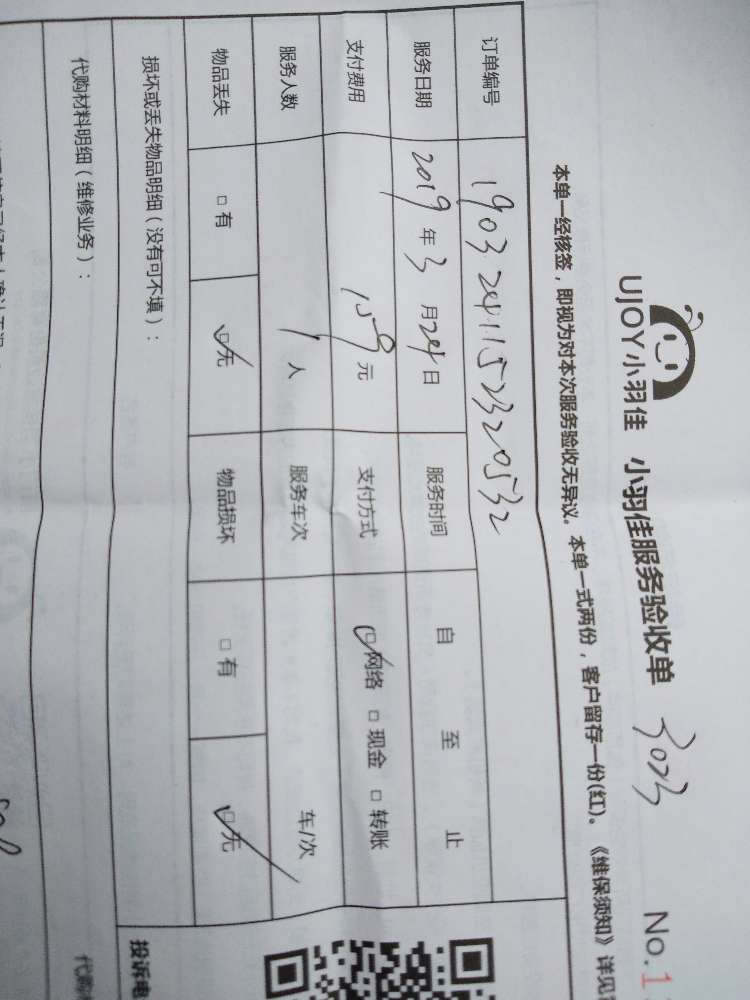 UJOY小羽佳 小羽佳服务验收单 3023 No.1
本单一经核签，即视为对本次服务验收无异议。本单一式两份，客户留存一份(红)。《维保须知》详见
订单编号 1903241152320532
服务日期 2019年3月24日 服务时间 自 至 止
支付费用 159元 支付方式 ☑网络 □现金 □转账
服务人数 1人 服务车次 车/次
物品丢失 □有 ☑无 物品损坏 □有 ☑无
损坏或丢失物品明细（没有可不填）： 投诉电
代购材料明细（维修业务）： 代购